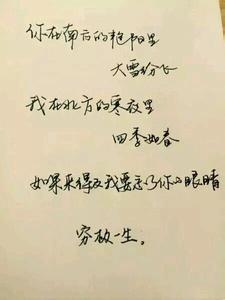 你在南方的艳阳里
大雪纷飞
我在北方的寒夜里
四季如春
如果来得及我要忘了你的眼睛
穷极一生。